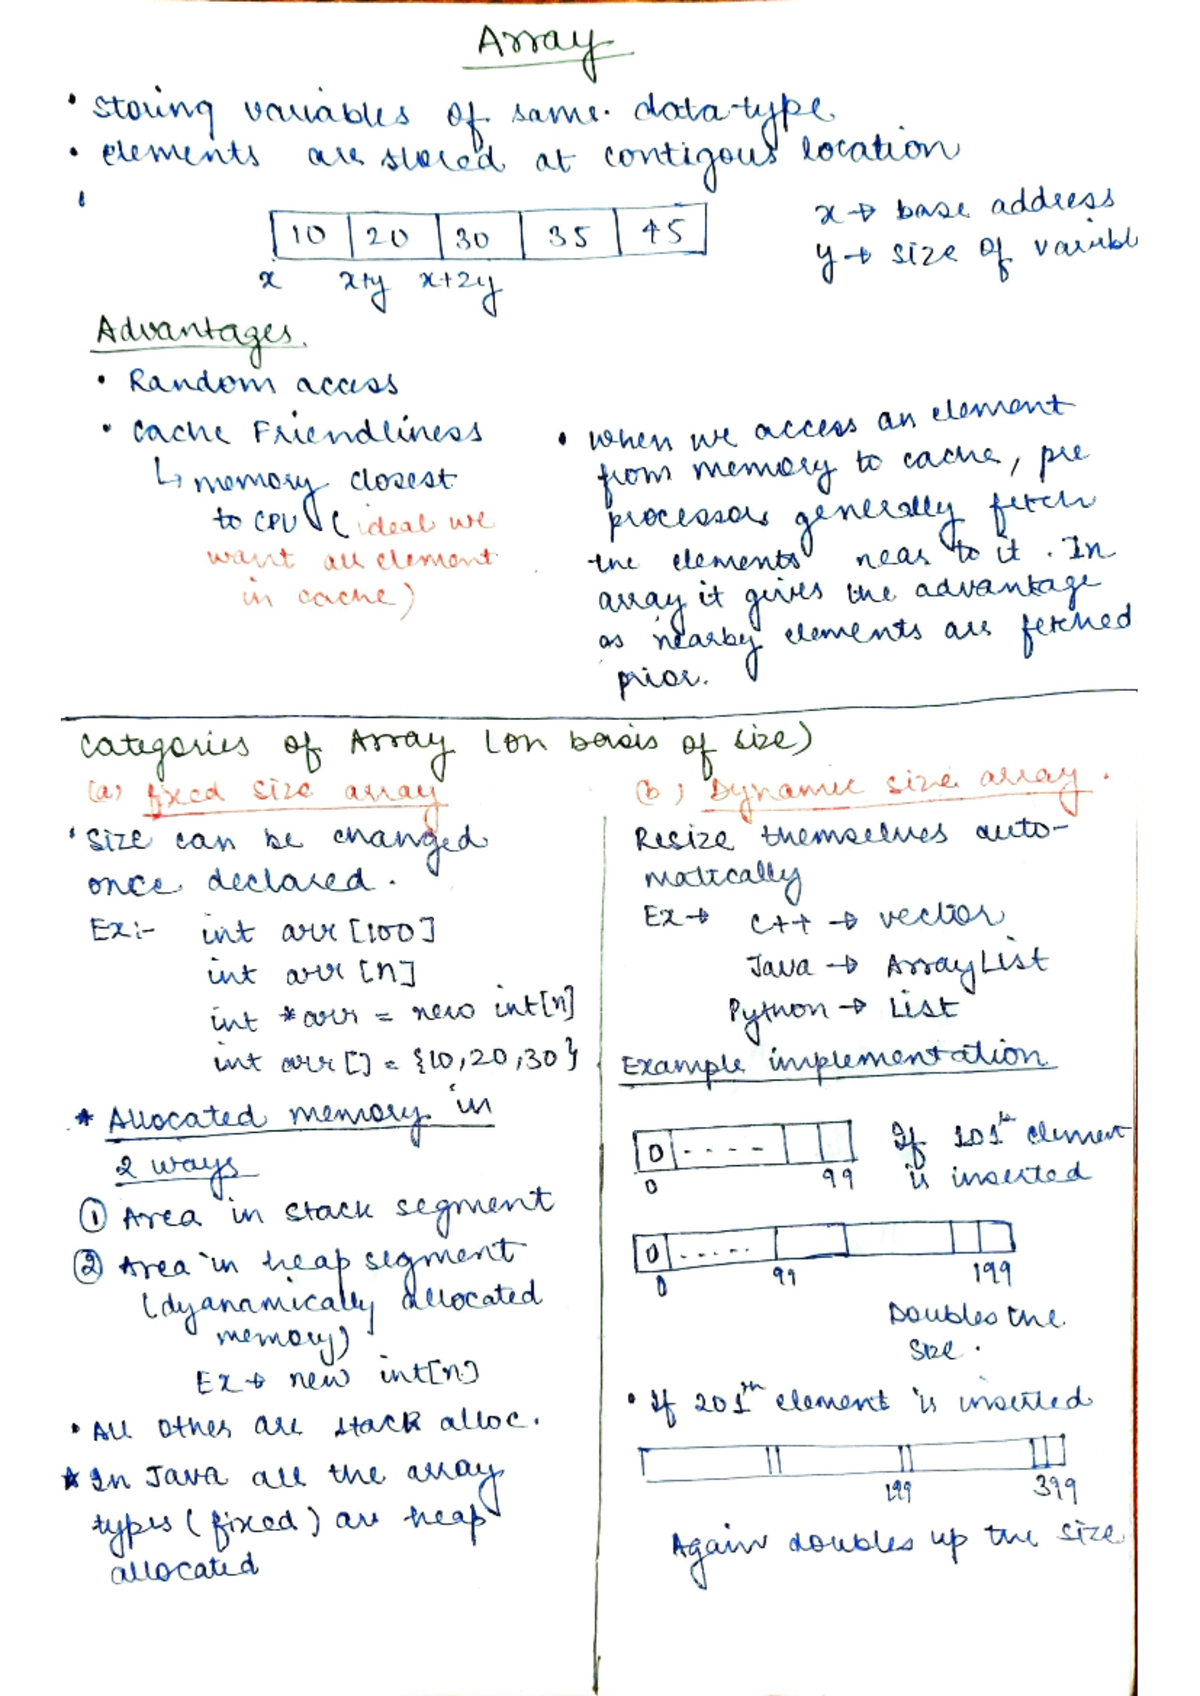 Array
• storing variables of same data type
• elements are stored at contigous location
10 20 30 35 45
x x+y x+2y
x → base address
y → size of variabl
Advantages.
• Random access
• Cache Friendliness
↳ memory closest
to CPU (ideal we
want all element
in cache)
• when we access an element
from memory to cache, pre
processors generally fetch
the elements near to it. In
array it gives the advantage
as nearby elements are fetched
prior.
Categories of Array (on basis of size)
(a) fixed size array
• Size can be changed
once declared.
Ex:- int arr [100]
int arr [n]
int *arr = new int[n]
int arr [] = {10,20,30}
* Allocated memory in
2 ways
① Area in stack segment
② Area in heap segment
(dyanamically allocated
memory)
Ex → new int[n]
• All other are stack alloc.
* In Java all the array
types (fixed) are heap
allocated
(b) Dynamic size array.
Resize themselves auto-
matically
Ex → C++ → vector
Java → ArrayList
Python → List
Example implementation
0 ....
0 99
If 101th element
is inserted
0 .....
0 99 199
Doubles the
size.
• If 201th element is inserted
199 399
Again doubles up the size